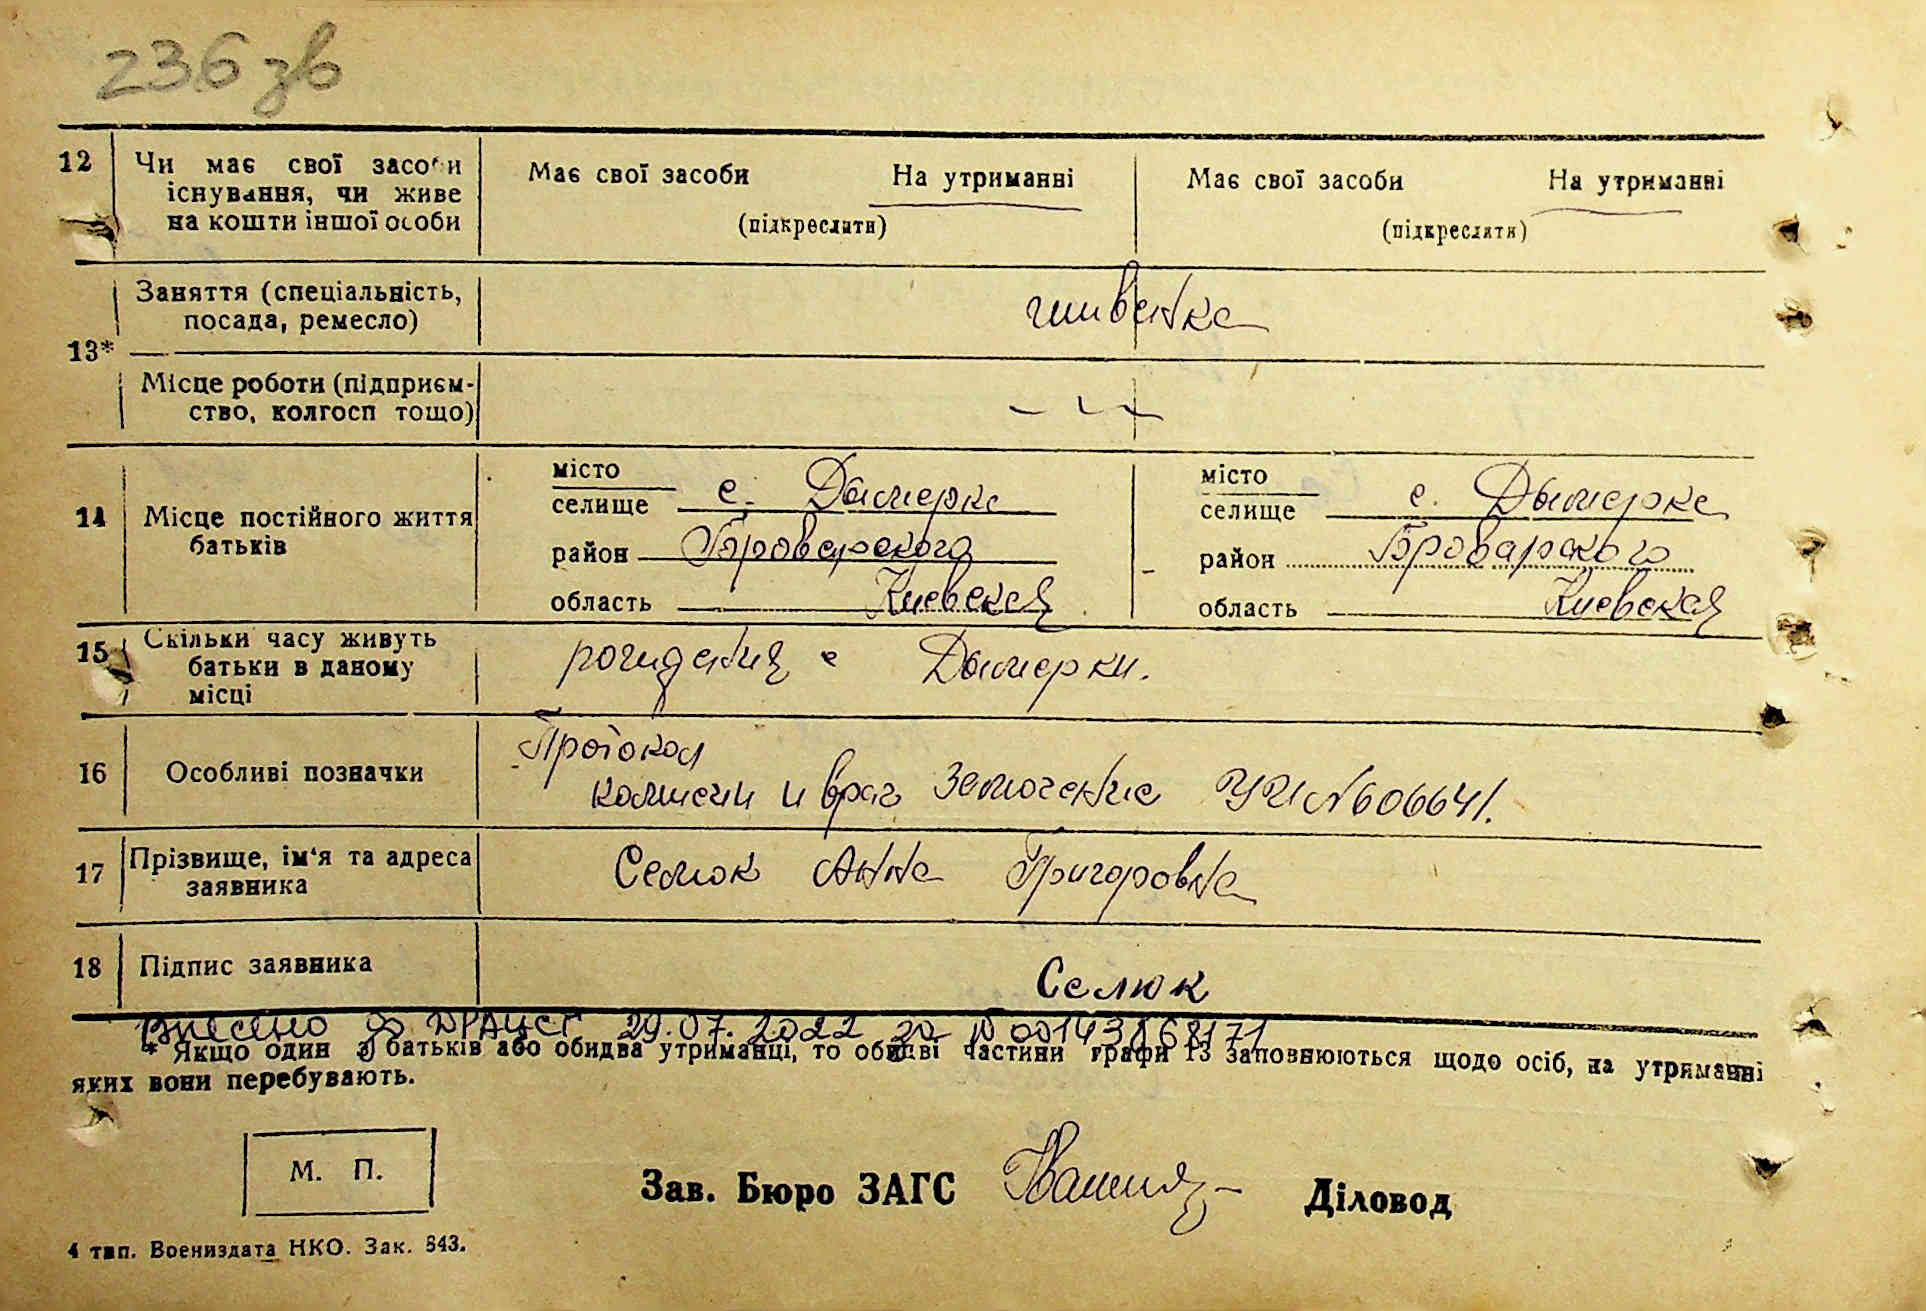 236 зв
12 Чи має свої засоби існування, чи живе на кошти іншої особи
Має свої засоби На утриманні
(підкреслити)
Має свої засоби На утриманні
(підкреслити)
13*
Заняття (спеціальність,
посада, ремесло)
Місце роботи (підприєм-
ство, колгосп тощо)
14 Місце постійного життя
батьків
місто
селище с. Дымерка
район Броварского
область Киевская
місто
селище с. Дымерка
район Броварского
область Киевская
15 Скільки часу живуть
батьки в даному
місці
рождения с Дымерки.
16 Особливі позначки
Протокол
и врач УЧ №606641.
17 Прізвище, ім'я та адреса
заявника
Селюк Анна Григоровна
18 Підпис заявника
Селюк
Внесено до ДРАЦСГ 29.07.2022 за № 00143868171
* Якщо один з батьків або обидва утриманці, то обидві частини графи 13 заповнюються щодо осіб, на утриманні
яких вони перебувають.
М. П.
Зав. Бюро ЗАГС
Діловод
4 тип. Воениздата НКО. Зак. 843.